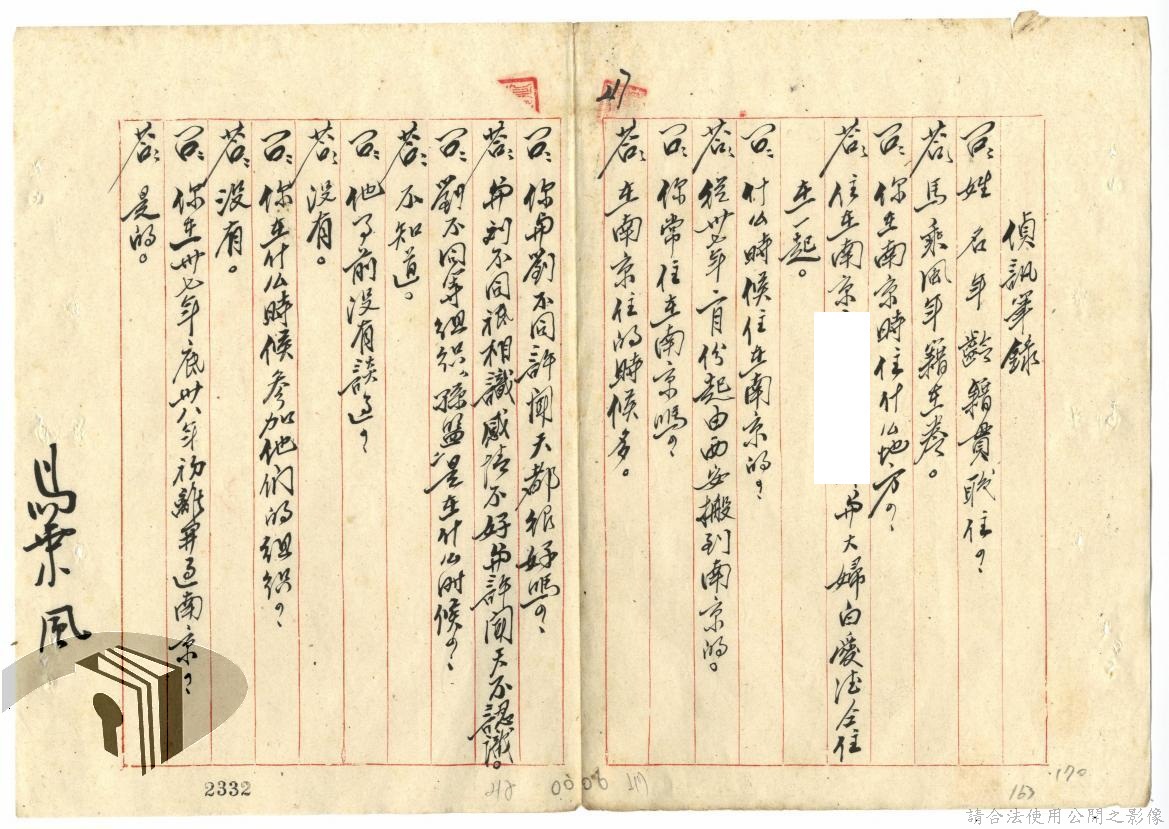 偵訊筆錄
問：姓名年齡籍貫职住？
答：馬乘風年籍在卷。
問：你在南京時住什仫地方？
答：住在南京
與大婦白愛
住
在一起。
問：什仫時候住在南京的？
答：從卅七年二月份起由西安搬到南京的。
問：你常住在南京嗎？
答：在南京住的時候多。
問：你與劉不同許聞天都很好嗎？
答：與刘不同祇相識感情不好與許聞天不認識。
問：劉不同等組織孫盟是在什仫时候？
答：不知道。
問：他了前没有談过？
答：没有。
問：你在什仫時候參加他们的组织？
答：没有。
問：你在卅七年底卅八年初離開过南京？
答：是的。
馬乘風
2332
170
請合法使用公開之影像